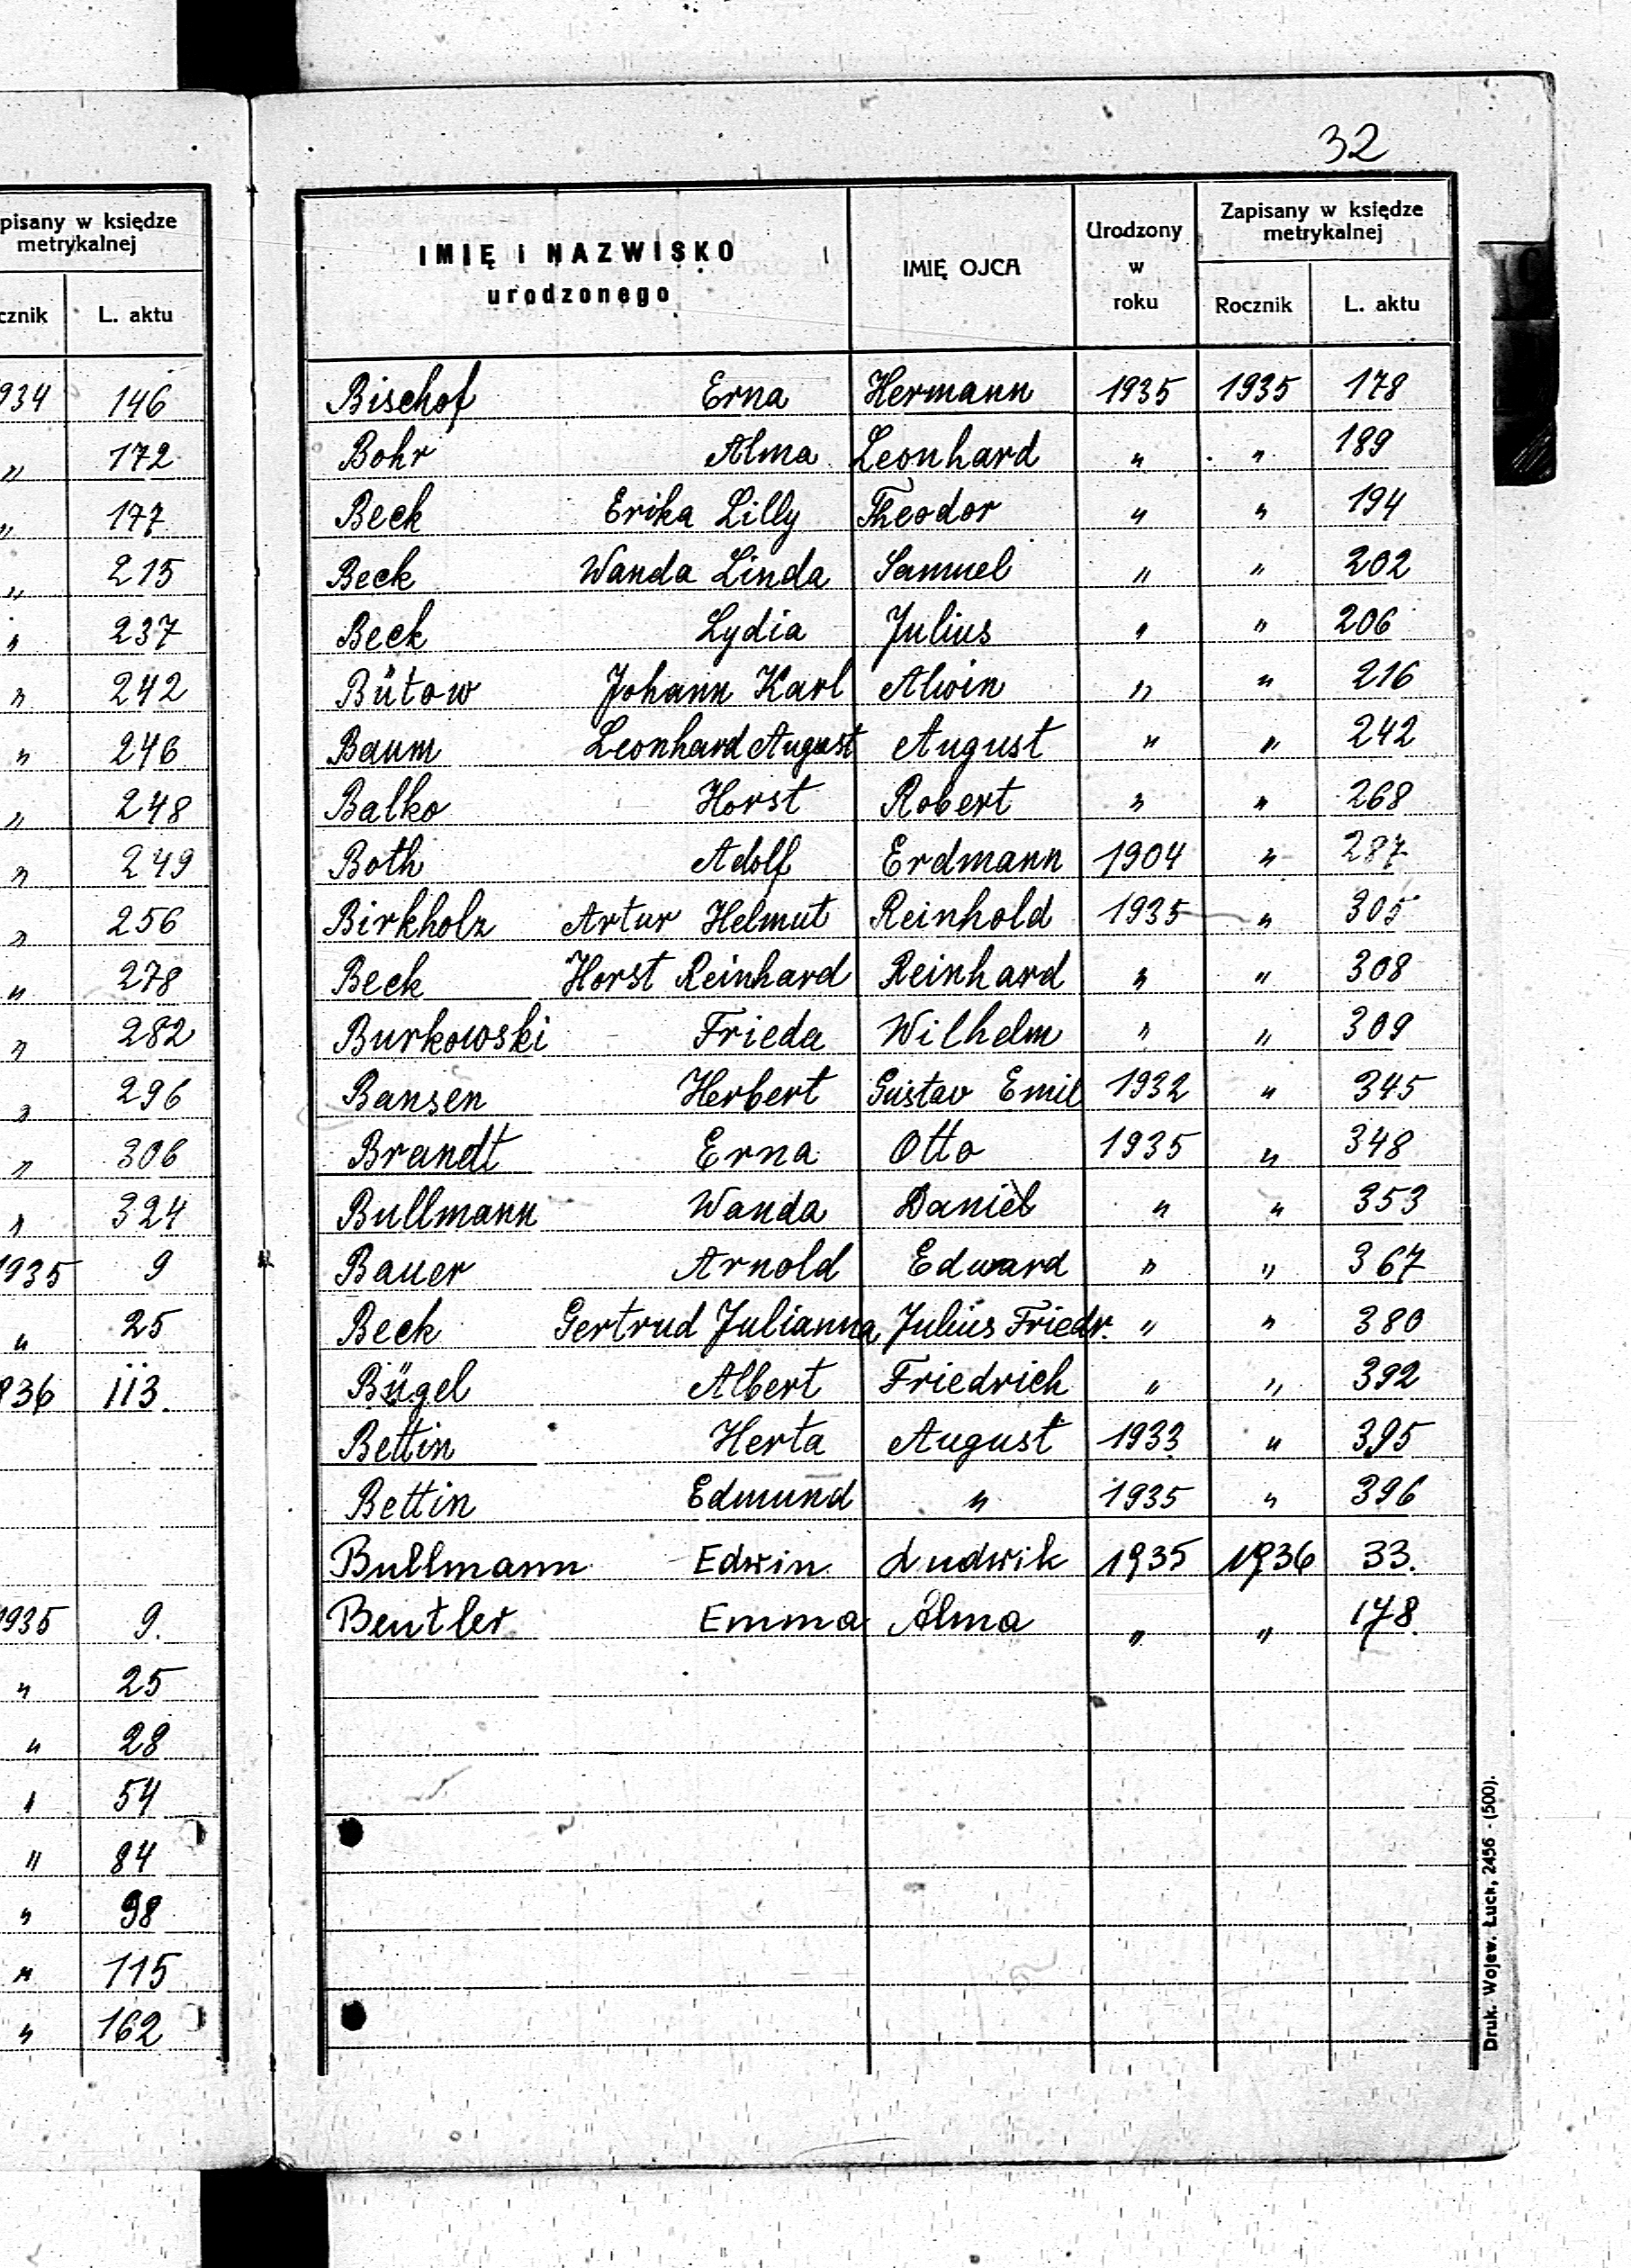 32
pisany w księdze
metrykalnej
cznik L. aktu
934 146
" 172
" 177
" 215
" 237
" 242
" 246
" 248
" 249
" 256
" 278
" 282
" 296
" 306
" 324
1935 9
" 25
836 113.
1935 9.
" 25
" 28
" 54
" 84
" 98
" 115
" 162
IMIĘ I NAZWISKO
urodzonego
IMIĘ OJCA
Urodzony
w
roku
Zapisany w księdze
metrykalnej
Rocznik L. aktu
Bischof Erna Hermann 1935 1935 178
Bohr Alma Leonhard " " 189
Beck Erika Lilly Theodor " " 194
Beck Wanda Linda Samuel " " 202
Beck Lydia Julius " " 206
Bütow Johann Karl Alwin " " 216
Baum Leonhard August August " " 242
Balko Horst Robert " " 268
Both Adolf Erdmann 1904 " 287
Birkholz Artur Helmut Reinhold 1935 " 305
Beck Horst Reinhard Reinhard " " 308
Burkowski Frieda Wilhelm " " 309
Bansen Herbert Gustav Emil 1932 " 345
Brandt Erna Otto 1935 " 348
Bullmann Wanda Daniel " " 353
Bauer Arnold Edward " " 367
Beck Gertrud Julianna Julius Friedr. " " 380
Bügel Albert Friedrich " " 392
Bettin Herta August 1933 " 395
Bettin Edmund " 1935 " 396
Bullmann Edwin Ludwik 1935 1936 33.
Beutler Emma Alma " " 178.
Druk. Wojew. Łuck, 2456 - (500).